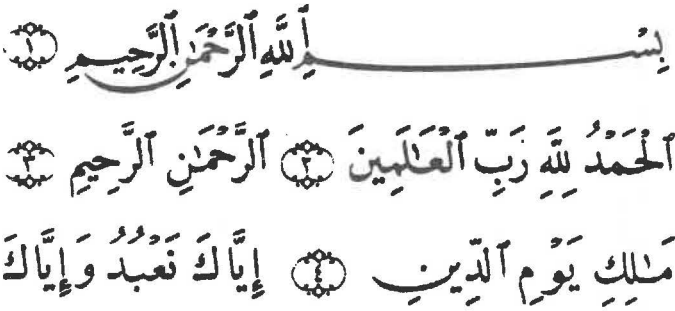 بِسْمِ ٱللَّهِ ٱلرَّحْمَٰنِ ٱلرَّحِيمِ ١
ٱلْحَمْدُ لِلَّهِ رَبِّ ٱلْعَٰلَمِينَ ٢ ٱلرَّحْمَٰنِ ٱلرَّحِيمِ ٣
مَٰلِكِ يَوْمِ ٱلدِّينِ ٤ إِيَّاكَ نَعْبُدُ وَإِيَّاكَ